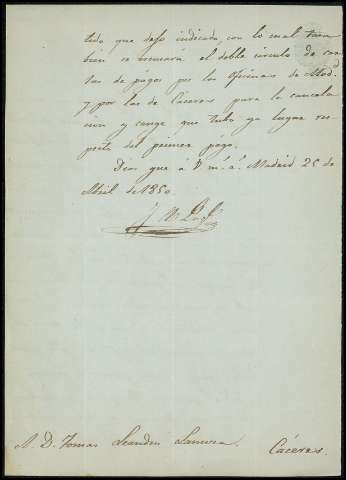 tedo que dejo indicada con lo cual tam
bien se escusará el doble círculo de car
tas de pagos por las Oficinas de Mad
y por las de Cáceres para la cancela
cion y cange que tubo ya lugar res
pecto del primer pago.
Dios gue á V m. a. Madrid 25 de
Abril de 1850
S. D. Tomas Leandro
Cáceres.